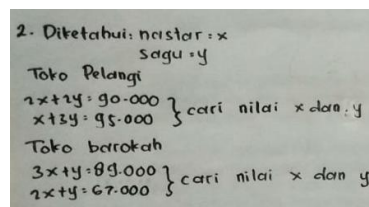 2. Diketahui: nastar = x
sagu = y
Toko Pelangi
2x+2y = 90.000
x+3y = 95.000 } cari nilai x dan y
Toko barokah
3x+y = 89.000
2x+y = 67.000 } cari nilai x dan y